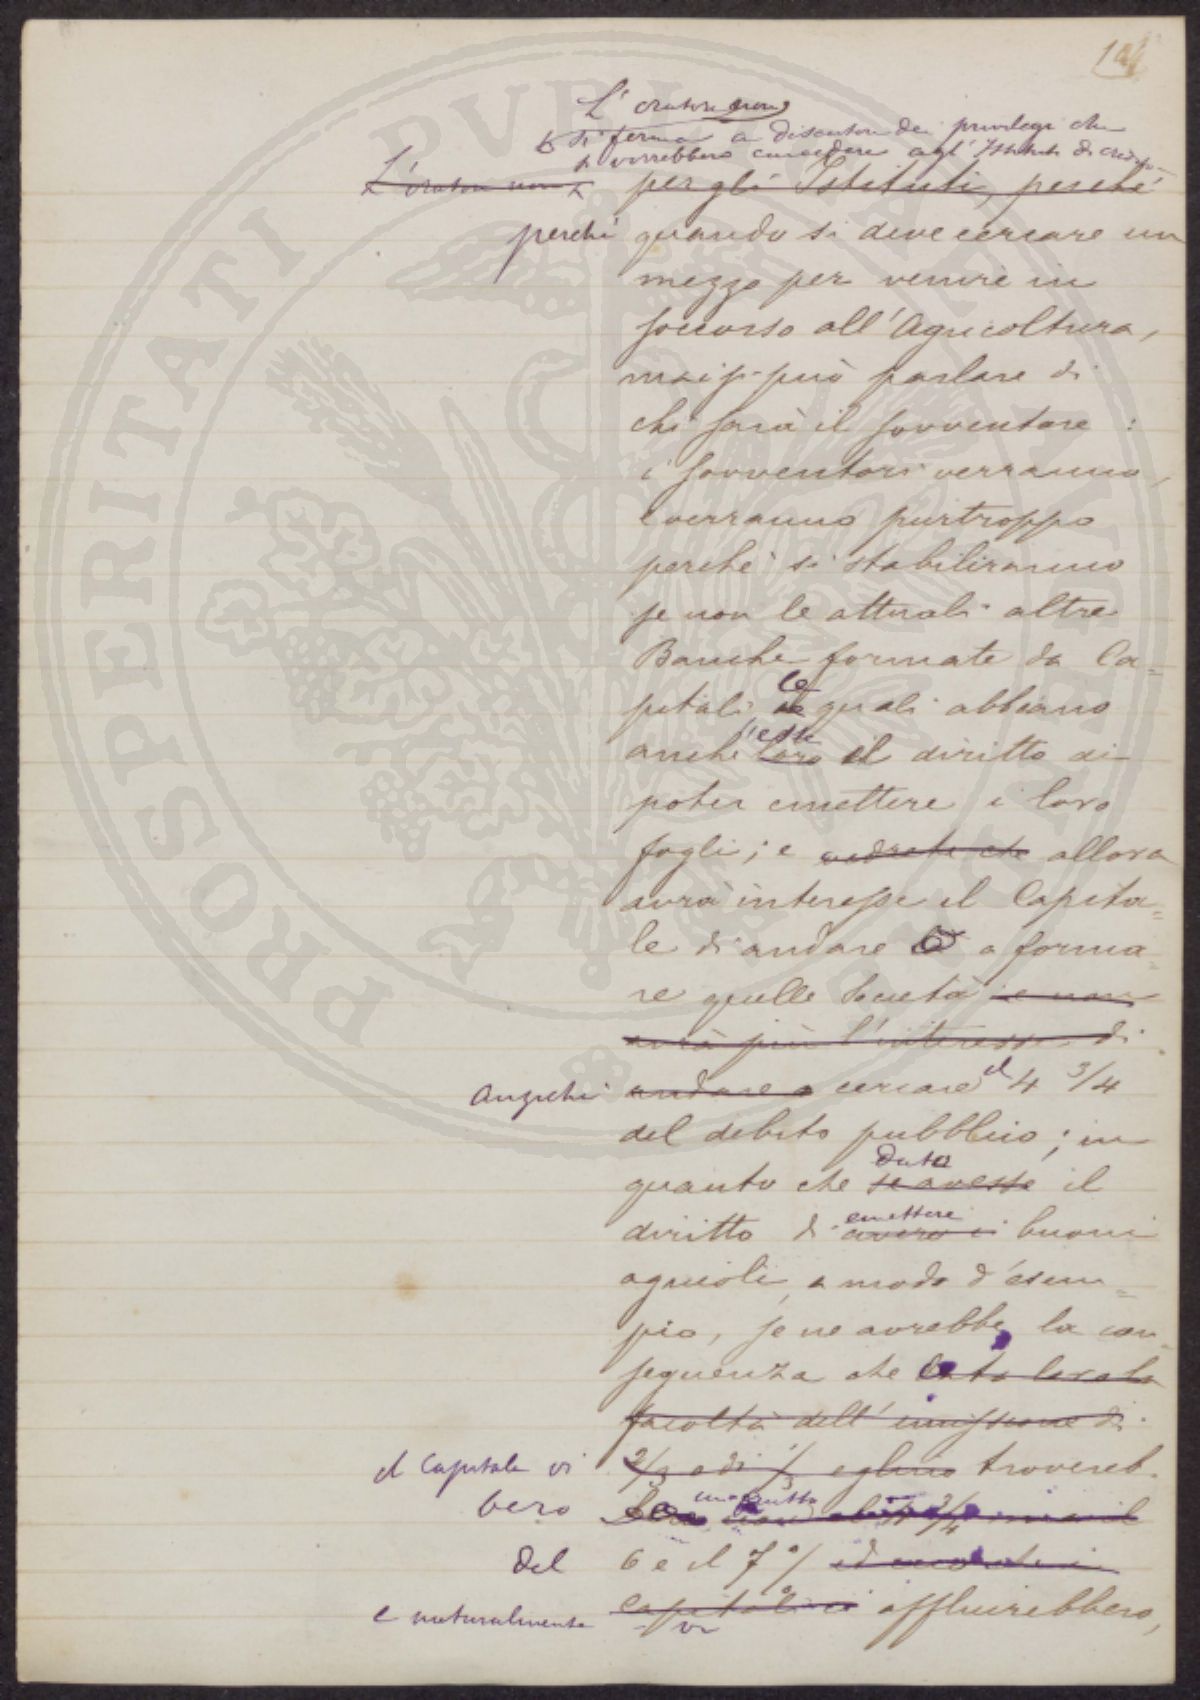 L'oratore non
si ferma a discutere dei privilegi che
si vorrebbero concedere agl'Istituti di credito
L'oratore non per gli Istituti, perché
perché quando si deve cercare un
mezzo per venire in
soccorso all'Agricoltura,
mai si può parlare di
chi sarà il sovventore:
i sovventori verranno,
e verranno purtroppo
perché si stabiliranno
se non le attuali altre
Banche formate da Ca=
pitali le quali abbiano
anche esse loro il diritto di
poter emettere i loro
fogli; e vedrete che allora
avrà interesse il Capita=
le di andare a forma=
re quelle Società e non
avrà più l'interesse di
anziché andare a cercare il 4 3/4
del debito pubblico; in
quanto che dato se avesse il
diritto di emettere avere i buoni
agricoli, a modo d'esem=
pio, se ne avrebbe la con=
seguenza che data loro la
facoltà dell'emissione di
il Capitale vi 2/3 o di 1/3 eglino trovereb=
bero un frutto non il 4 3/4 ma il
del 6 e il 7 % ed i
e naturalmente capitali vi affluirebbero,
PROSPERITATI PVBLICAE